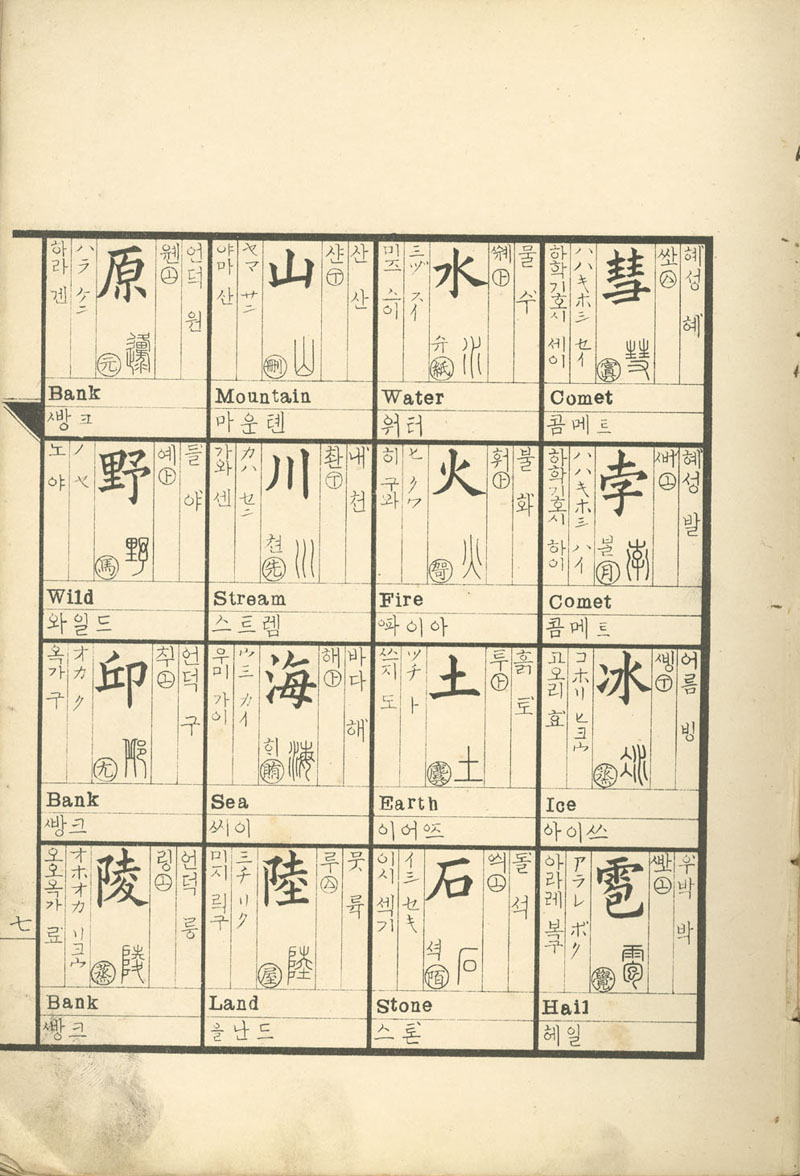 혜성 혜
彗
ハハキボシ セイ
하학기호시 세이
Comet
콤메트
혜성 발
孛
월
月
ハハキホシ ハイ
하학기호시 하이
Comet
콤메트
어름 빙
冰
蒸
コホリ ヒヨウ
고오리 효
Ice
아이쓰
우박 박
雹
覺
アラレ ボク
아라레 복구
Hail
헤일
물 수
水
弁
紙
ミヅ スイ
미즈 스이
Water
워터
불 화
火
ヒ クワ
히 구와
Fire
ᅋᅡ이아
흙 토
투 上
土
麌
ツチ ト
쓰지 도
Earth
이어ᅂᅳ
돌 석
石
셕
陌
イシ セキ
이시 섹기
Stone
스톤
산 산
샨 下
山
刪
ヤマ サン
야마 산
Mountain
마운텐
내 천
촨 下
川
천
先
カハ セン
가와 센
Stream
스트렘
바다 해
해 上
海
賄
ウミ カイ
우미 가이
Sea
씨이
뭇 륙
루 入
陸
屋
ミチ リク
미지 릭구
Land
을난드
언덕 원
원 上
原
元
ハラ ケン
하라 겐
Bank
ᄲᅡᆼ크
들 야
예 上
野
馬
ノ ヤ
노 야
Wild
와일드
언덕 구
칖 上
邱
尤
オカ ク
옥가 구
Bank
ᄲᅡᆼ크
언덕 릉
링 上
陵
蒸
オホオカ リヨウ
오오옥가 료
Bank
ᄲᅡᆼ크
七